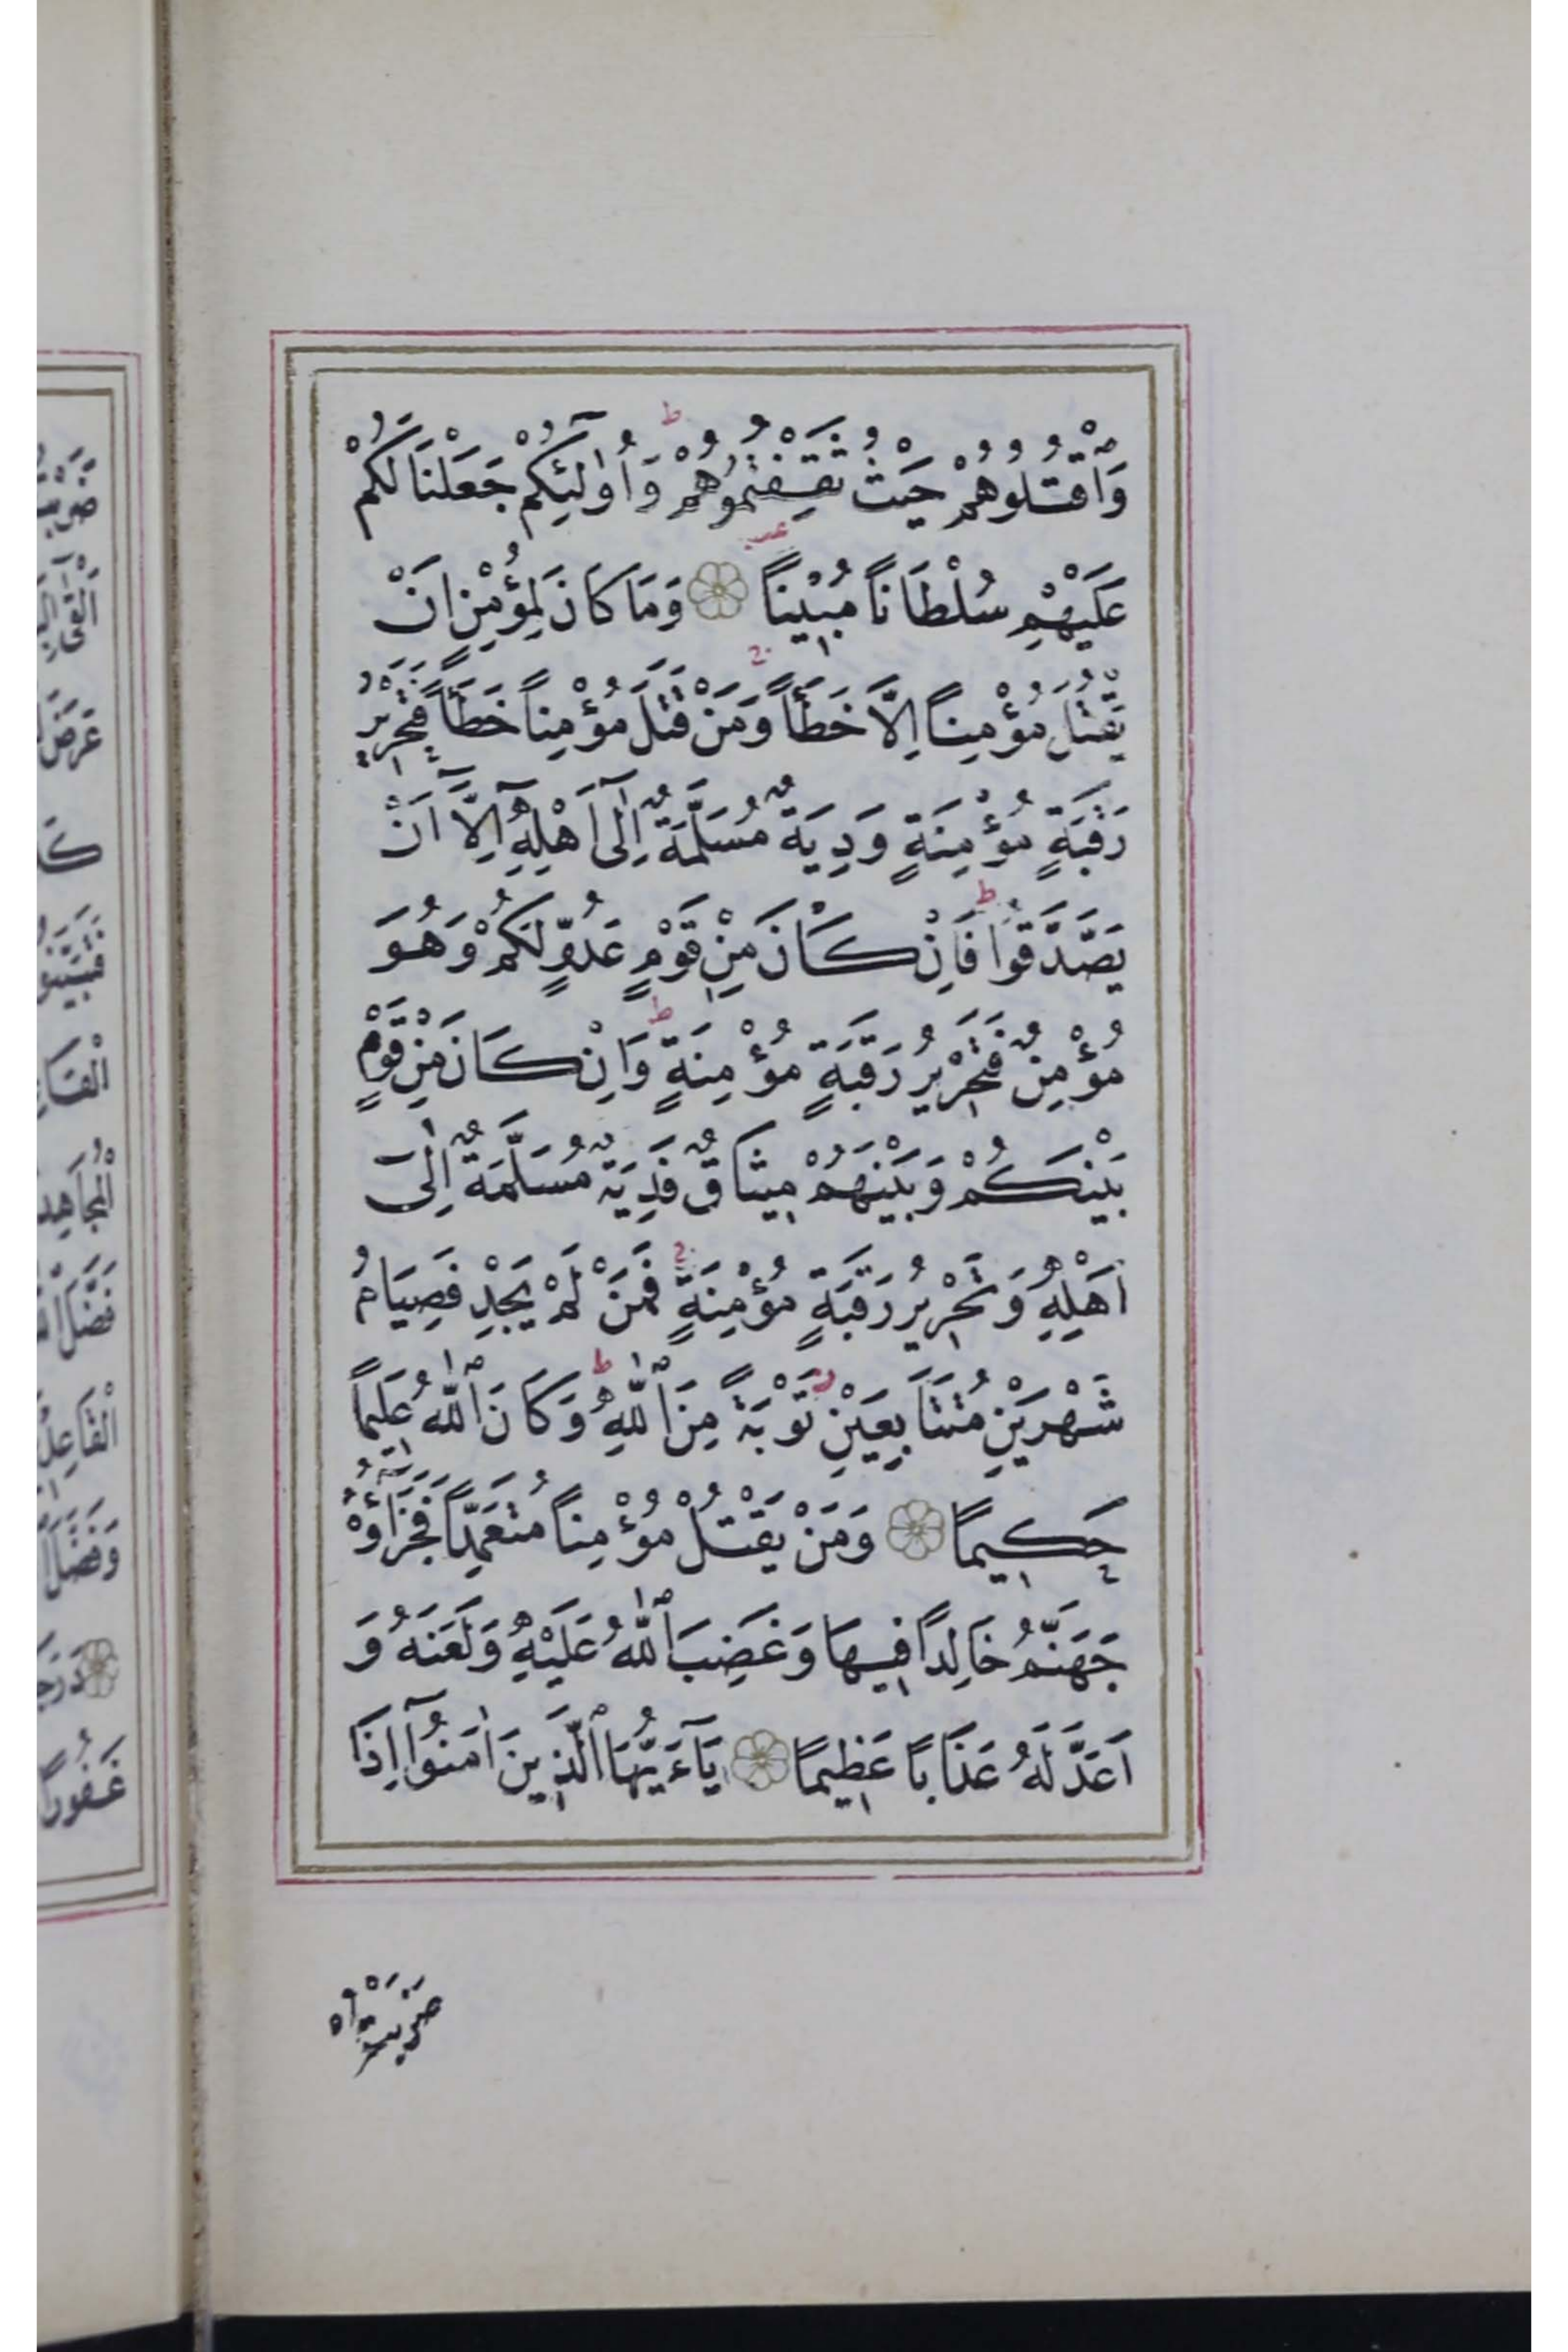 وَاقْتُلُوهُمْ حَيْثُ ثَقِفْتُمُوهُمْ ط وَاُولٰٓئِكُمْ جَعَلْنَا لَكُمْ
عَلَيْهِمْ سُلْطَاناً مُبِيناً وَمَا كَانَ لِمُؤْمِنٍ اَنْ
يَقْتُلَ مُؤْمِناً اِلَّا خَطَـأً ج وَمَنْ قَتَلَ مُؤْمِناً خَطَـأً فَتَحْرِيرُ
رَقَبَةٍ مُؤْمِنَةٍ وَدِيَةٌ مُسَلَّمَةٌ اِلٰٓى اَهْلِهِ اِلَّٓا اَنْ
يَصَّدَّقُوا ط فَاِنْ كَانَ مِنْ قَوْمٍ عَدُوٍّ لَكُمْ وَهُوَ
مُؤْمِنٌ فَتَحْرِيرُ رَقَبَةٍ مُؤْمِنَةٍ ط وَاِنْ كَانَ مِنْ قَوْمٍ
بَيْنَكُمْ وَبَيْنَهُمْ مِيثَاقٌ فَدِيَةٌ مُسَلَّمَةٌ اِلٰٓى
اَهْلِهِ وَتَحْرِيرُ رَقَبَةٍ مُؤْمِنَةٍ ج فَمَنْ لَمْ يَجِدْ فَصِيَامُ
شَهْرَيْنِ مُتَتَابِعَيْنِ ز تَوْبَةً مِنَ اللّٰهِ ط وَكَانَ اللّٰهُ عَلِيماً
حَكِيماً وَمَنْ يَقْتُلْ مُؤْمِناً مُتَعَمِّداً فَجَزَاؤُهُ
جَهَنَّمُ خَالِداً فِيهَا وَغَضِبَ اللّٰهُ عَلَيْهِ وَلَعَنَهُ وَ
اَعَدَّ لَهُ عَذَاباً عَظِيماً يَٓاءَيُّهَا الَّذِينَ اٰمَنُٓوا اِذَا
ضَرَبْتُمْ